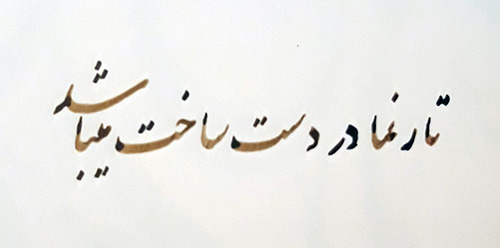 تارنما در دست ساخت میباشد